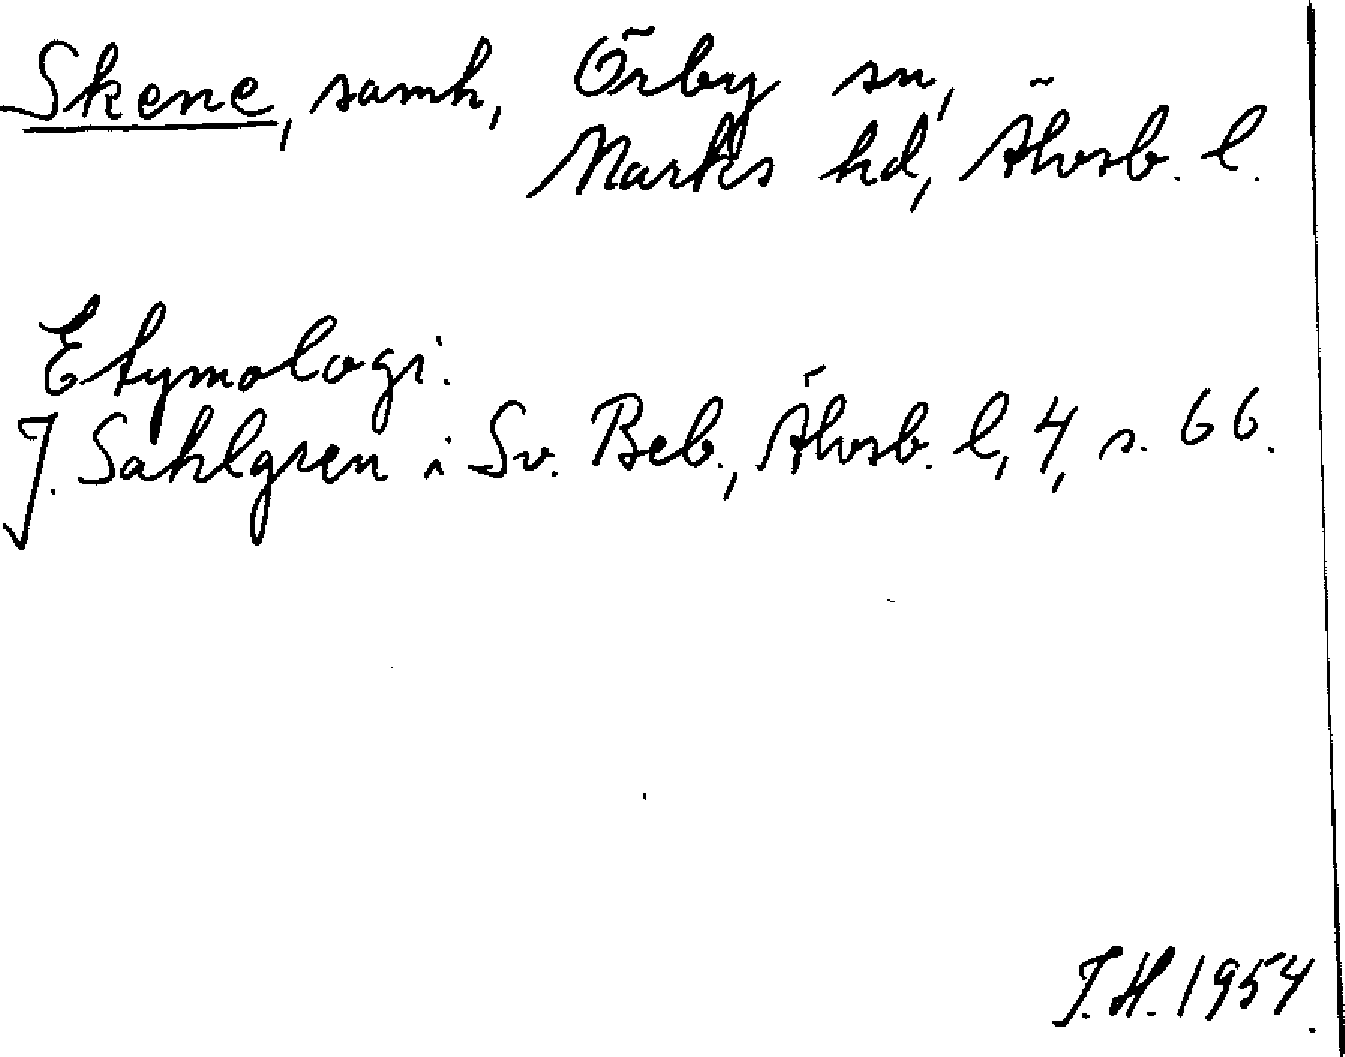 Skene, samh, Örby sn,
Marks hd, Älvsb. l.
Etymologi.
J. Sahlgren i Sv. Beb., Älvsb. l, 4, s. 66.
J.H. 1954.